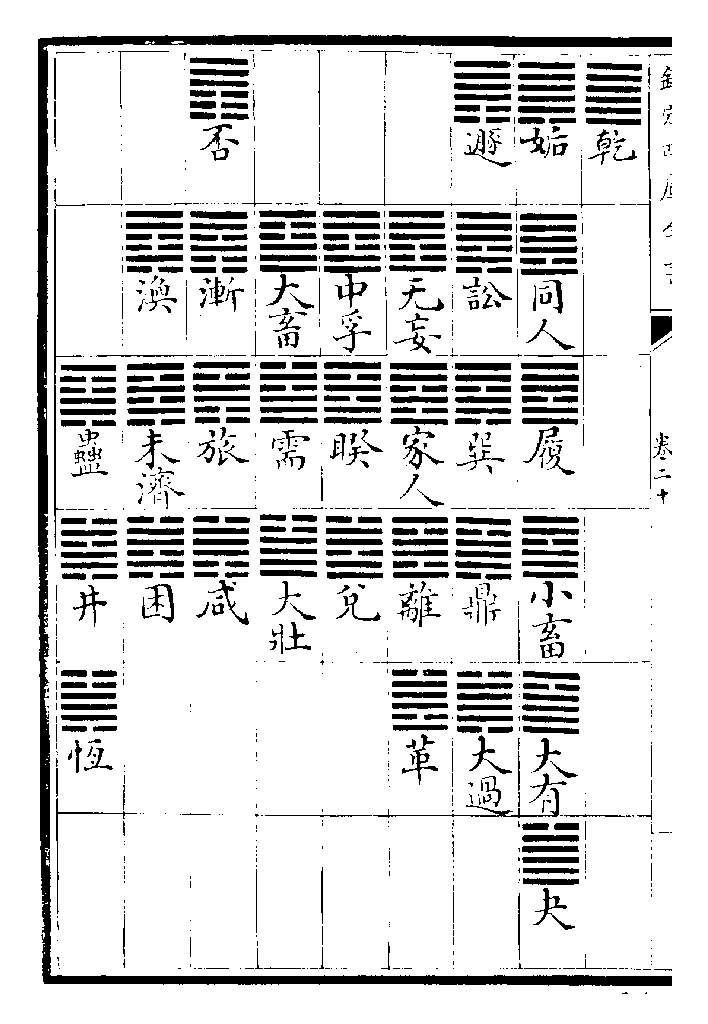 欽定四庫全書
卷二十
乾
姤
同人
履
小畜
大有
夬
遯
訟
巽
鼎
大過
无妄
家人
離
革
中孚
睽
兌
大畜
需
大壯
否
漸
旅
咸
渙
未濟
困
蠱
井
恆